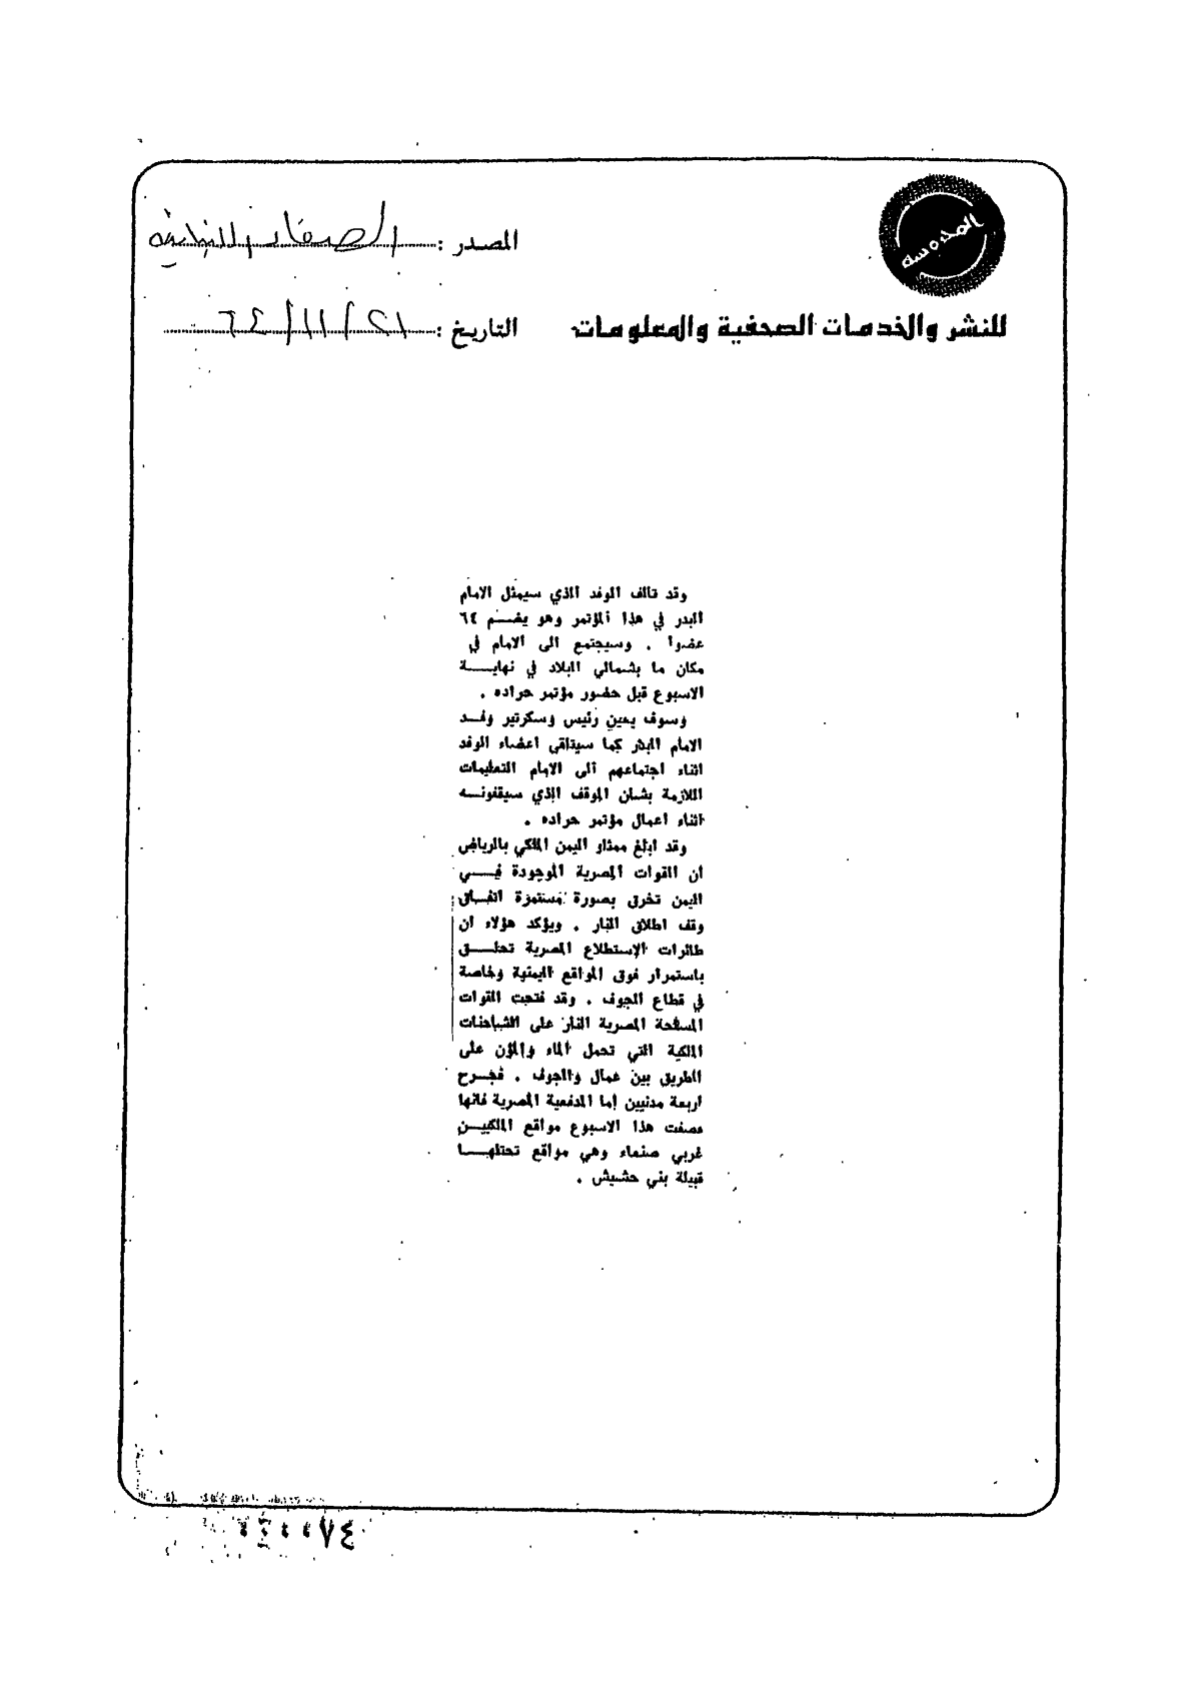 المحروسة
المصدر : الصفاء اللبنانية
للنشر والخدمات الصحفية والمعلومات
التاريخ : ٢١ / ١١ / ٦٤
وقد تالف الوفد الذي سيمثل الامام
البدر في هذا المؤتمر وهو يضــم ٦٤
عضوا . وسيجتمع الى الامام في
مكان ما بشمالي البلاد في نهايــة
الاسبوع قبل حضور مؤتمر حراده .
وسوف يعين رئيس وسكرتير وفــد
الامام البدر كما سيتلقى اعضاء الوفد
اثناء اجتماعهم الى الامام التعليمات
اللازمة بشان الموقف الذي سيقفونــه
اثناء اعمال مؤتمر حراده .
وقد ابلغ ممثلو اليمن الملكي بالرياض
ان القوات المصرية الموجودة فــي
اليمن تخرق بصورة مستمرة اتفــاق
وقف اطلاق النار . ويؤكد هؤلاء ان
طائرات الاستطلاع المصرية تحلــق
باستمرار فوق المواقع اليمنية وخاصة
في قطاع الجوف . وقد فتحت القوات
المسلحة المصرية النار على الشاحنات
الملكية التي تحمل الماء والمؤن على
الطريق بين عمال والجوف . فجــرح
اربعة مدنيين اما المدفعية المصرية فانها
قصفت هذا الاسبوع مواقع الملكييــن
غربي صنعاء وهي مواقع تحتلهــا
قبيلة بني حشيش .